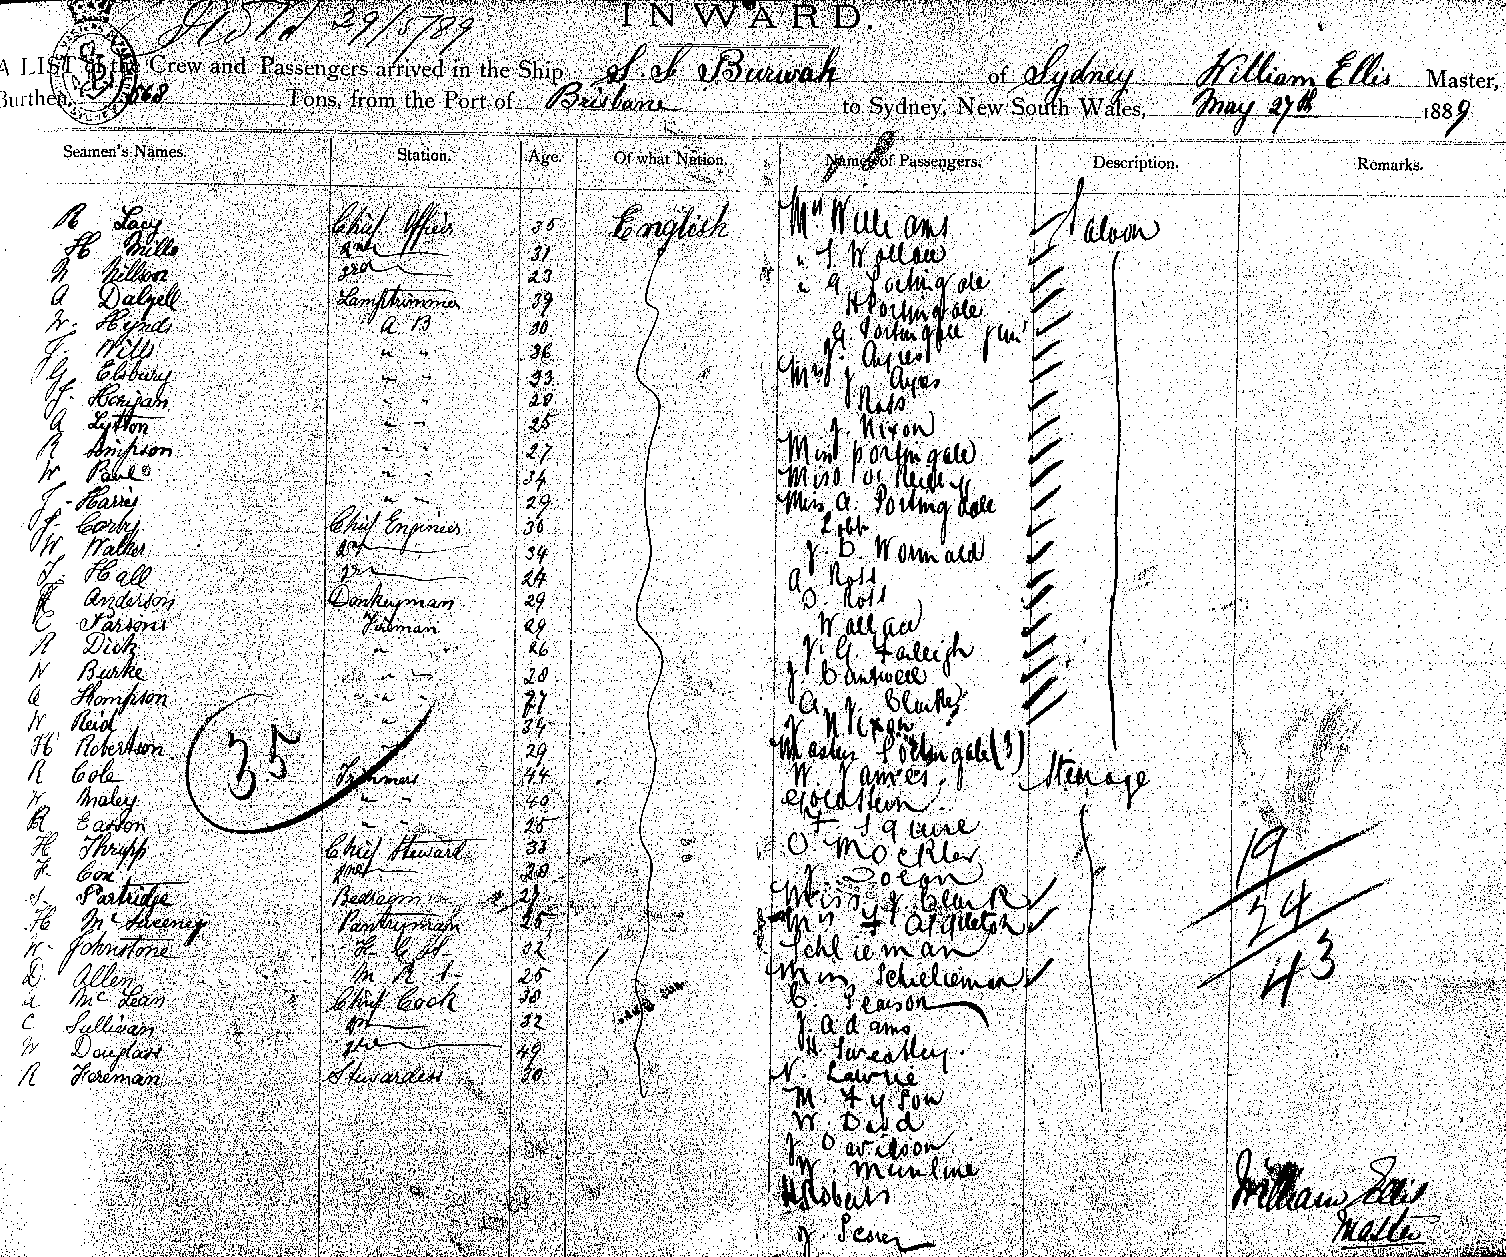 29/5/89
INWARD.
A LIST of the Crew and Passengers arrived in the Ship S. S. Burwah of Sydney William Ellis Master,
Burthen, 568 Tons, from the Port of Brisbane to Sydney, New South Wales, May 27th 1889
Seamen's Names. Station. Age. Of what Nation. Names of Passengers. Description. Remarks.
R Lacy Chief Officer 35 English Mrs Williams Saloon
H Mills 2nd 31 " S Wallace
N Nillson 3rd 23 " G Portingale
A Dalzell Lamptrimmer 39 H Portingale
W. Hynds A B 30 G Portingale junr
T Wills " " 36 J. Ayres
G Elsbury " " 33 Mrs J Ayres
J. Horigan " " 28 Ross
A Lytton " " 25 J. Nixon
R Simpson " " 27 Miss Portingale
W Paul " " 34 Miss
J. Harris " " 29 Miss A. Portingale
J. Corby Chief Engineer 36 Lobb
W Walker 2nd 34 J. D Wormald
T. Hall 3rd 24 A Ross
R Anderson Donkeyman 29 D Ross
C Parsons Fireman 29 Wallace
R Dick " " 26 J. G. Raleigh
N Burke " " 28 J Cantwell
A Thompson " " 27 A. J. Clarke
W Reid " 34 J N Nixon
H Robertson 29 Masters Portingale (3)
R Cole Trimmers 44 W James. Steerage
W Maley " " 40 Goldstein
R Easson " " 25 F Squire
H Thrupp Chief Steward 33 O Mockler
F. Cox 2nd 28 Dolan
S. Partridge Bedroom 27 Miss J Clark
H McSweeney Pantryman 25 Mrs F Appleton
W. Johnstone F. C. St. 32 Schlieman
D Allen M R S 25 Mrs Schlieman
A McLean Chief Cock 38 C. Pearson
C Sullivan 2nd 32 J. Adams
W Douglass 3rd 49 H Sweatley.
R Foreman Stewardess 30 N. Lawrie
M. Fyson
W. David
J Davidson
W. Mainline
H Roberts
J.
35
19
24
43
William Ellis
Master